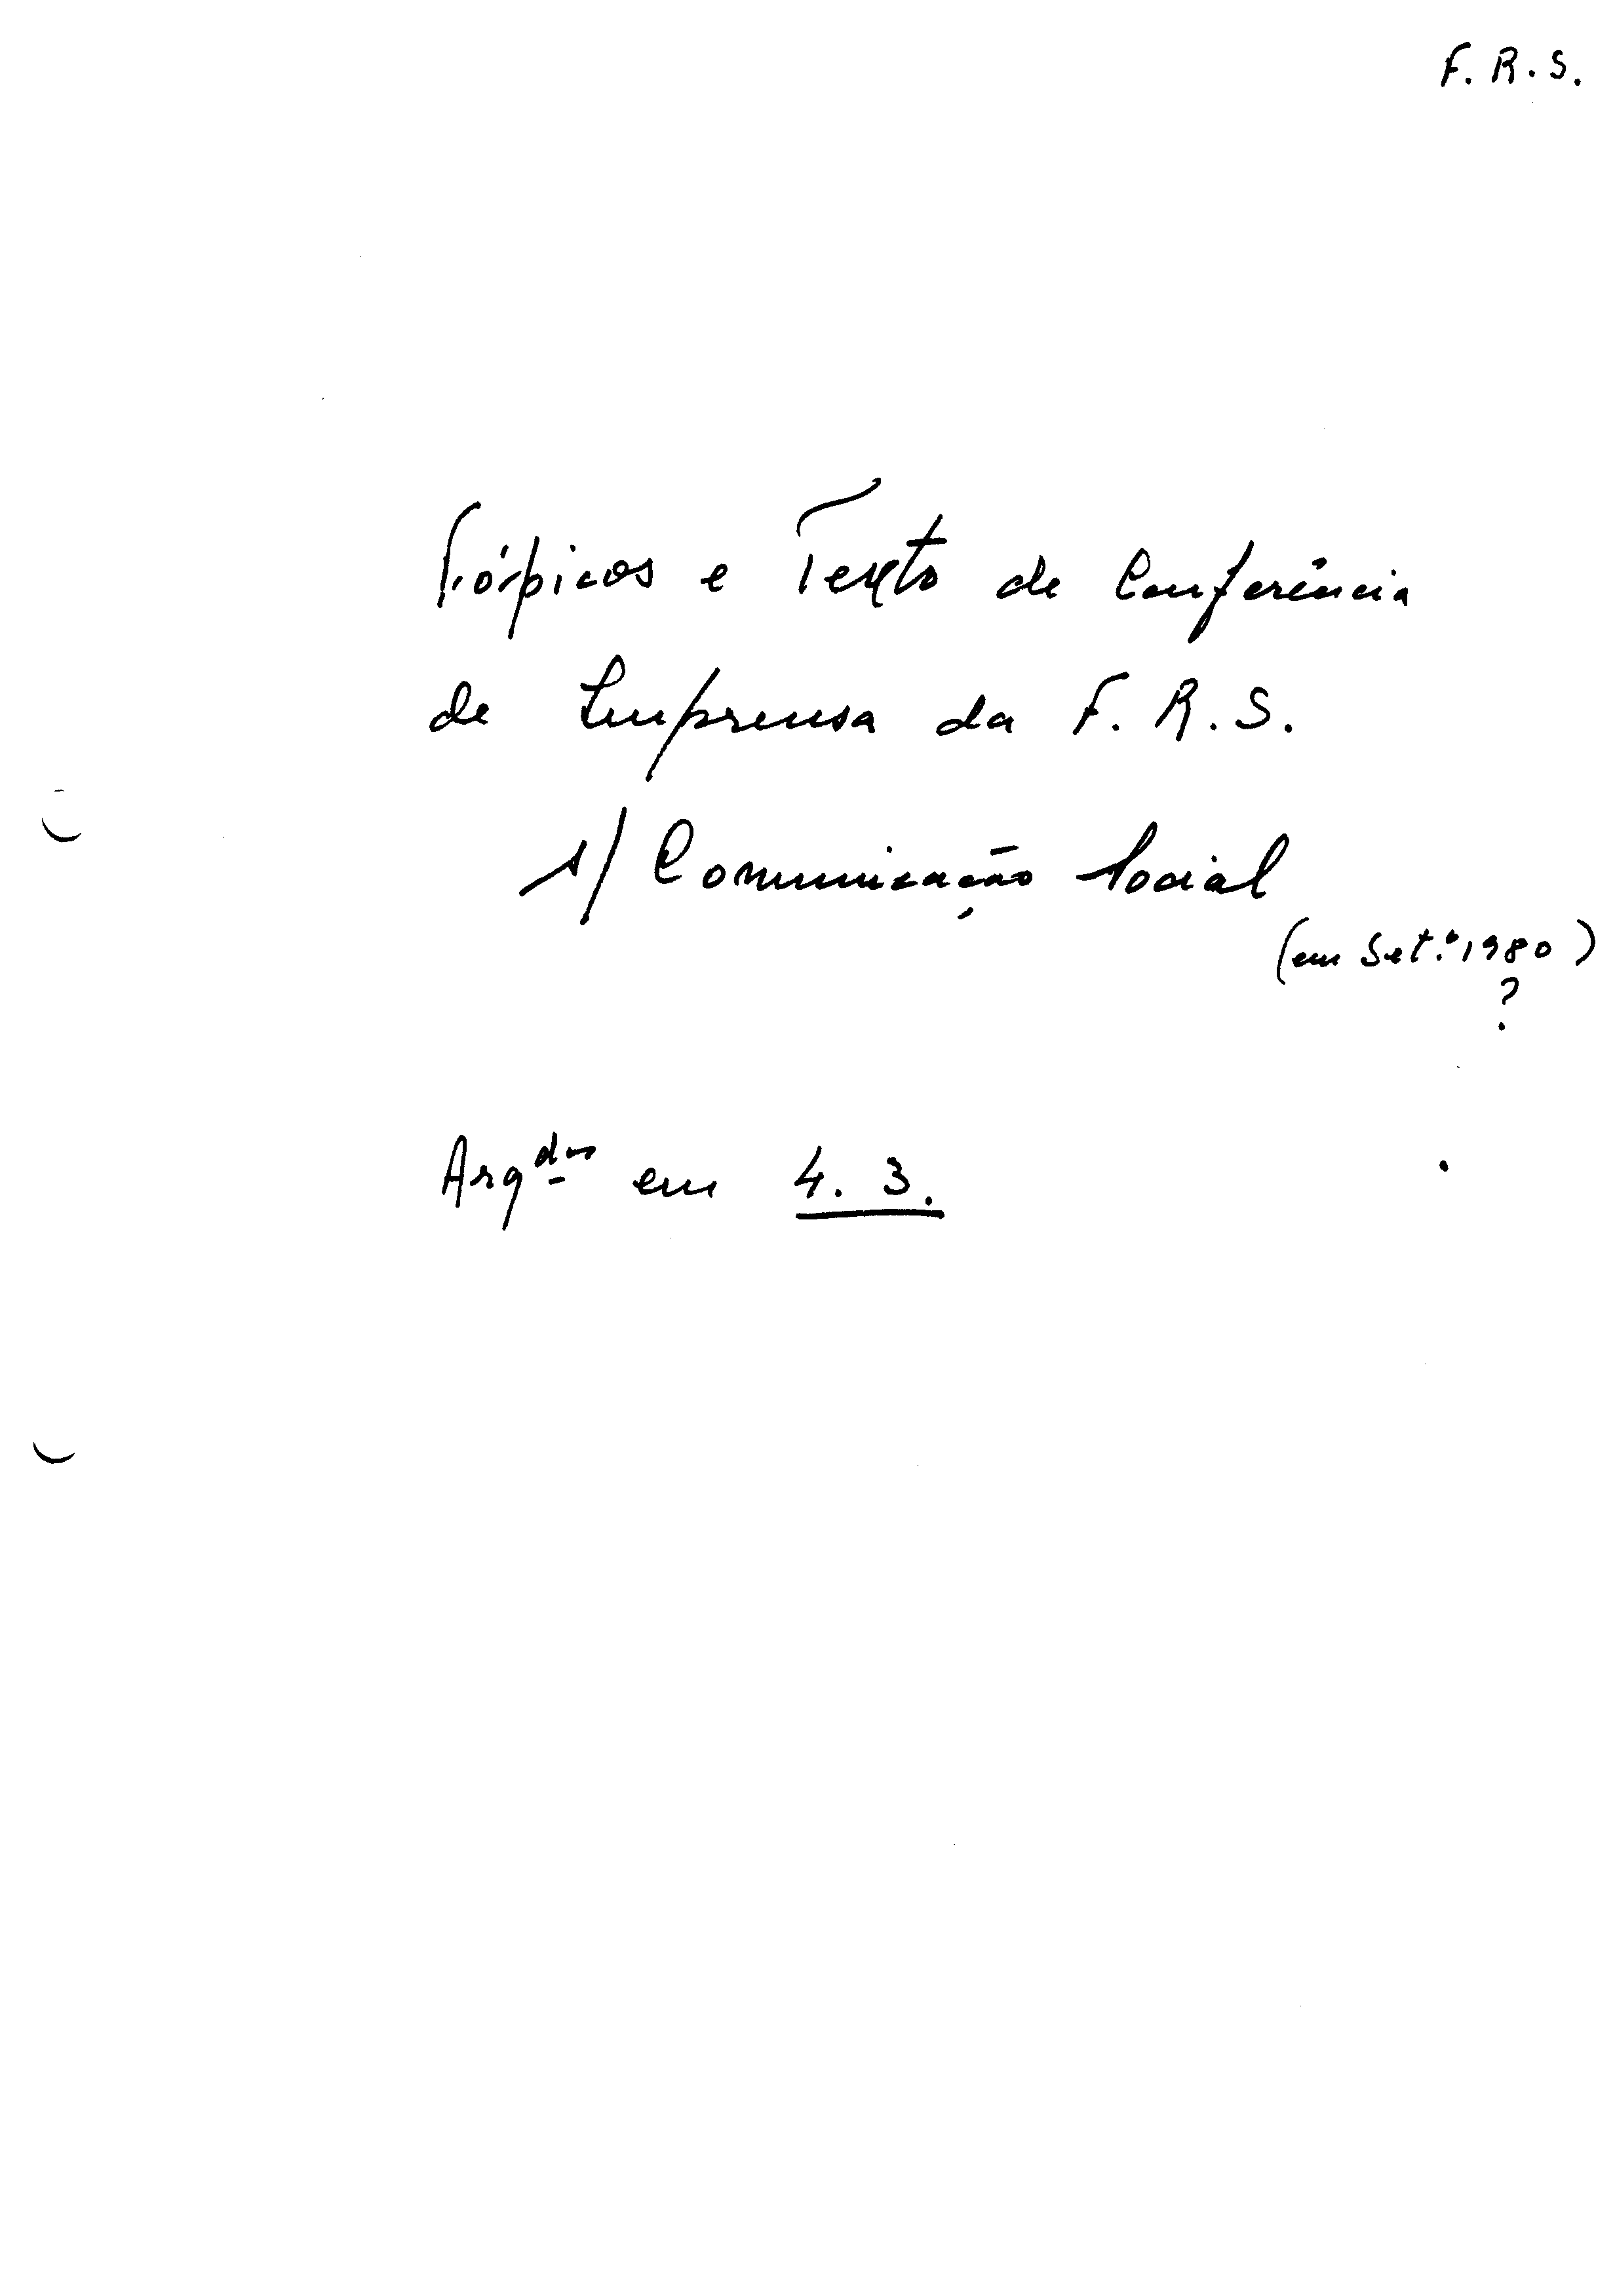 F. R. S.
Tópicos e Texto de Conferência
de Imprensa da F. R. S.
s/ Comunicação Social
(em Set.º 1980)
?
Arqdos em 4. 3.